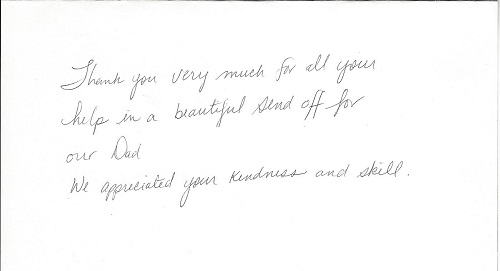 Thank you very much for all your
help in a beautiful send off for
our Dad
We appreciated your kindness and skill.